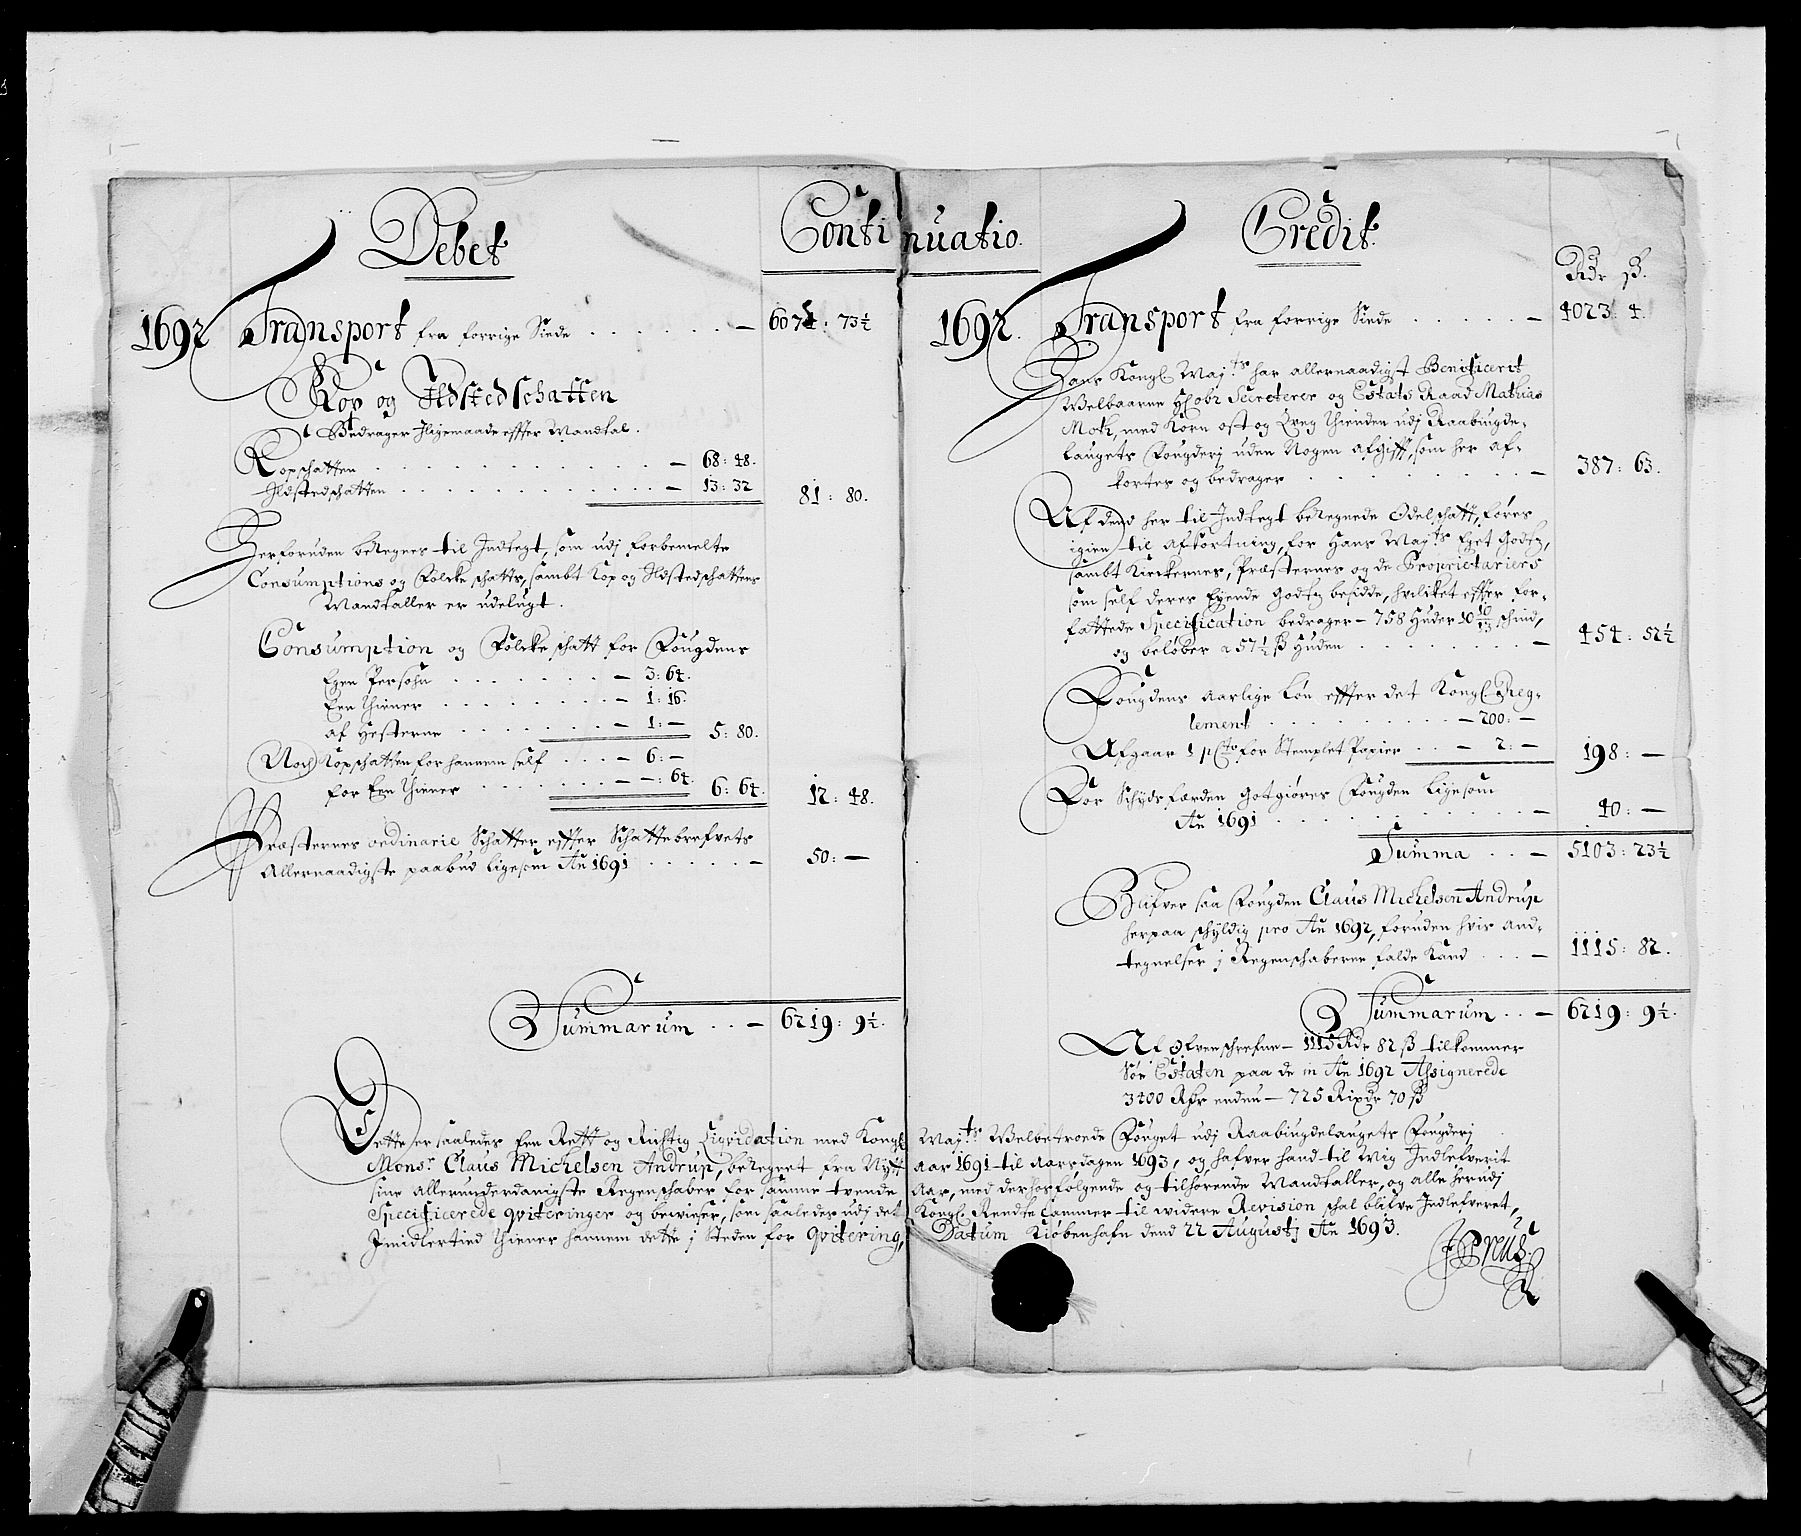 Debet
1692 Transport fra forrige Siede . . . . . . — 6074 : 73½
Kop og Ildstedschatten
Bedrager Iligemaade effter Mandtal.
Kopschatten . . . . . . . . . . . — 68 : 48.
Ildstedschatten . . . . . . . . . . — 13 : 32
81 : 80.
Herforuden beregnes til Indtegt, som udj forbemelte
Consumptions og Folcke schatts, sambt Kop og Ildstedschattens
Mandtaller er udelugt.
Consumption og Folcke schatt for Fougdens
Egen Persohn . . . . . . . — 3 : 64.
Een Thiener . . . . . . . — 1 : 16.
af Hesterne . . . . . . . — 1 : — 5 : 80.
Noch Kopschatten for hannem self . . . — 6 : —
for Een Thiener . . . . . . — — : 64. 6 : 64.
12 : 48.
Præsternes ordinarie Schatter effter Schattebrefvets
Allernaadigste paabud ligesom Aū 1691 . . . . . — 50 : —
Summarum . . — 6219 : 9½.
Continuatio.
Credit.
Rdr ß.
1692. Transport fra forrige Siede . . . . . — 4023 4.
Hans Kongl Majts har allernaadigst Benificerit
Welbaarne Hr Obr Secreterer og Estats Raad Mathias
Moth, med Korn ost og Qveg Thienden udj Raabiugde-
laugets Fougderj uden Nogen afgifft, som her af-
kortes og bedrager . . . . . . . . — 387 : 63.
Af dend her til Indtegt beregnede Odelschatt, føres
igien til afkortning, for Hans Majts Eget Godtz,
sambt Kierkernes, Præsternes og de Proprietariers
som self deres Egende Godtz besidde, hvilket effter for-
fattede Specification bedrager — 758 Huder 10 10/13 schind,
og beløber a 57½ ß Huden . . . . . . . . — 454 : 52½
Fougdens Aarlige løn effter det Kongl Reg-
lement . . . . . . . . . — 200 : —
Afgaar 1 pCto for Stemplet Papier . . — 2 : — 198 : —
For Schyds færden Gotgiøres Fougden ligesom
Aū 1691 . . . . . . . . . . . — 40 : —
Summa . . — 5103 : 23½
Blifver saa Fougden Claus Michelsen Andrup
herpaa schyldig pro Aū 1692, foruden hvis And-
tegnelser j Regenschaberne falde Kand . . . — 1115 : 82.
Summarum . . — 6219 : 9½.
Af Ofvenschrefne — 1115 Rdr 82 ß tilkommer
Søe Estaten paa de in Aū 1692 Assignerede
3400 Rdr endnu — 725 Rixdr 70 ß
Dette er saaledes Een Rett og Richtig Liqvidation med Kongl Majts Welbetroede Fouget udj Raabiugdelaugets Fougderj
Monsr Claus Michelsen Andrup, beregnet fra Nytt Aar 1691 til Aarsdagen 1693, og hafver hand til Mig Indlefverit
sine allerunderdanigste Regenschaber for samme tvende Aar, med derhosfølgende og tilhørende Mandtaller, og alle herudj
Specificerede qviteringer og beviiser, som saaledes udj det Kongl Rendte Cammer til widere Revision schal blifve Indlefveret,
Imidlertied thiener hannem dette j Steden for qvitering, Datum Kiøbenhafn dend 22 Augustj Aū 1693.